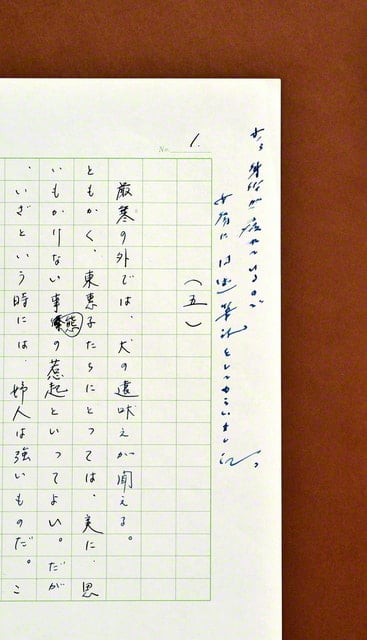 身体が疲れているので
女房に口述筆記をしてもらいました。
No. 1.
（五）
厳寒の外では、犬の遠吠えが聞える。
ともかく、東恵子たちにとっては、実に、思
いもかけない事態の惹起といってよい。だが
、いざという時には、婦人は強いものだ。こ